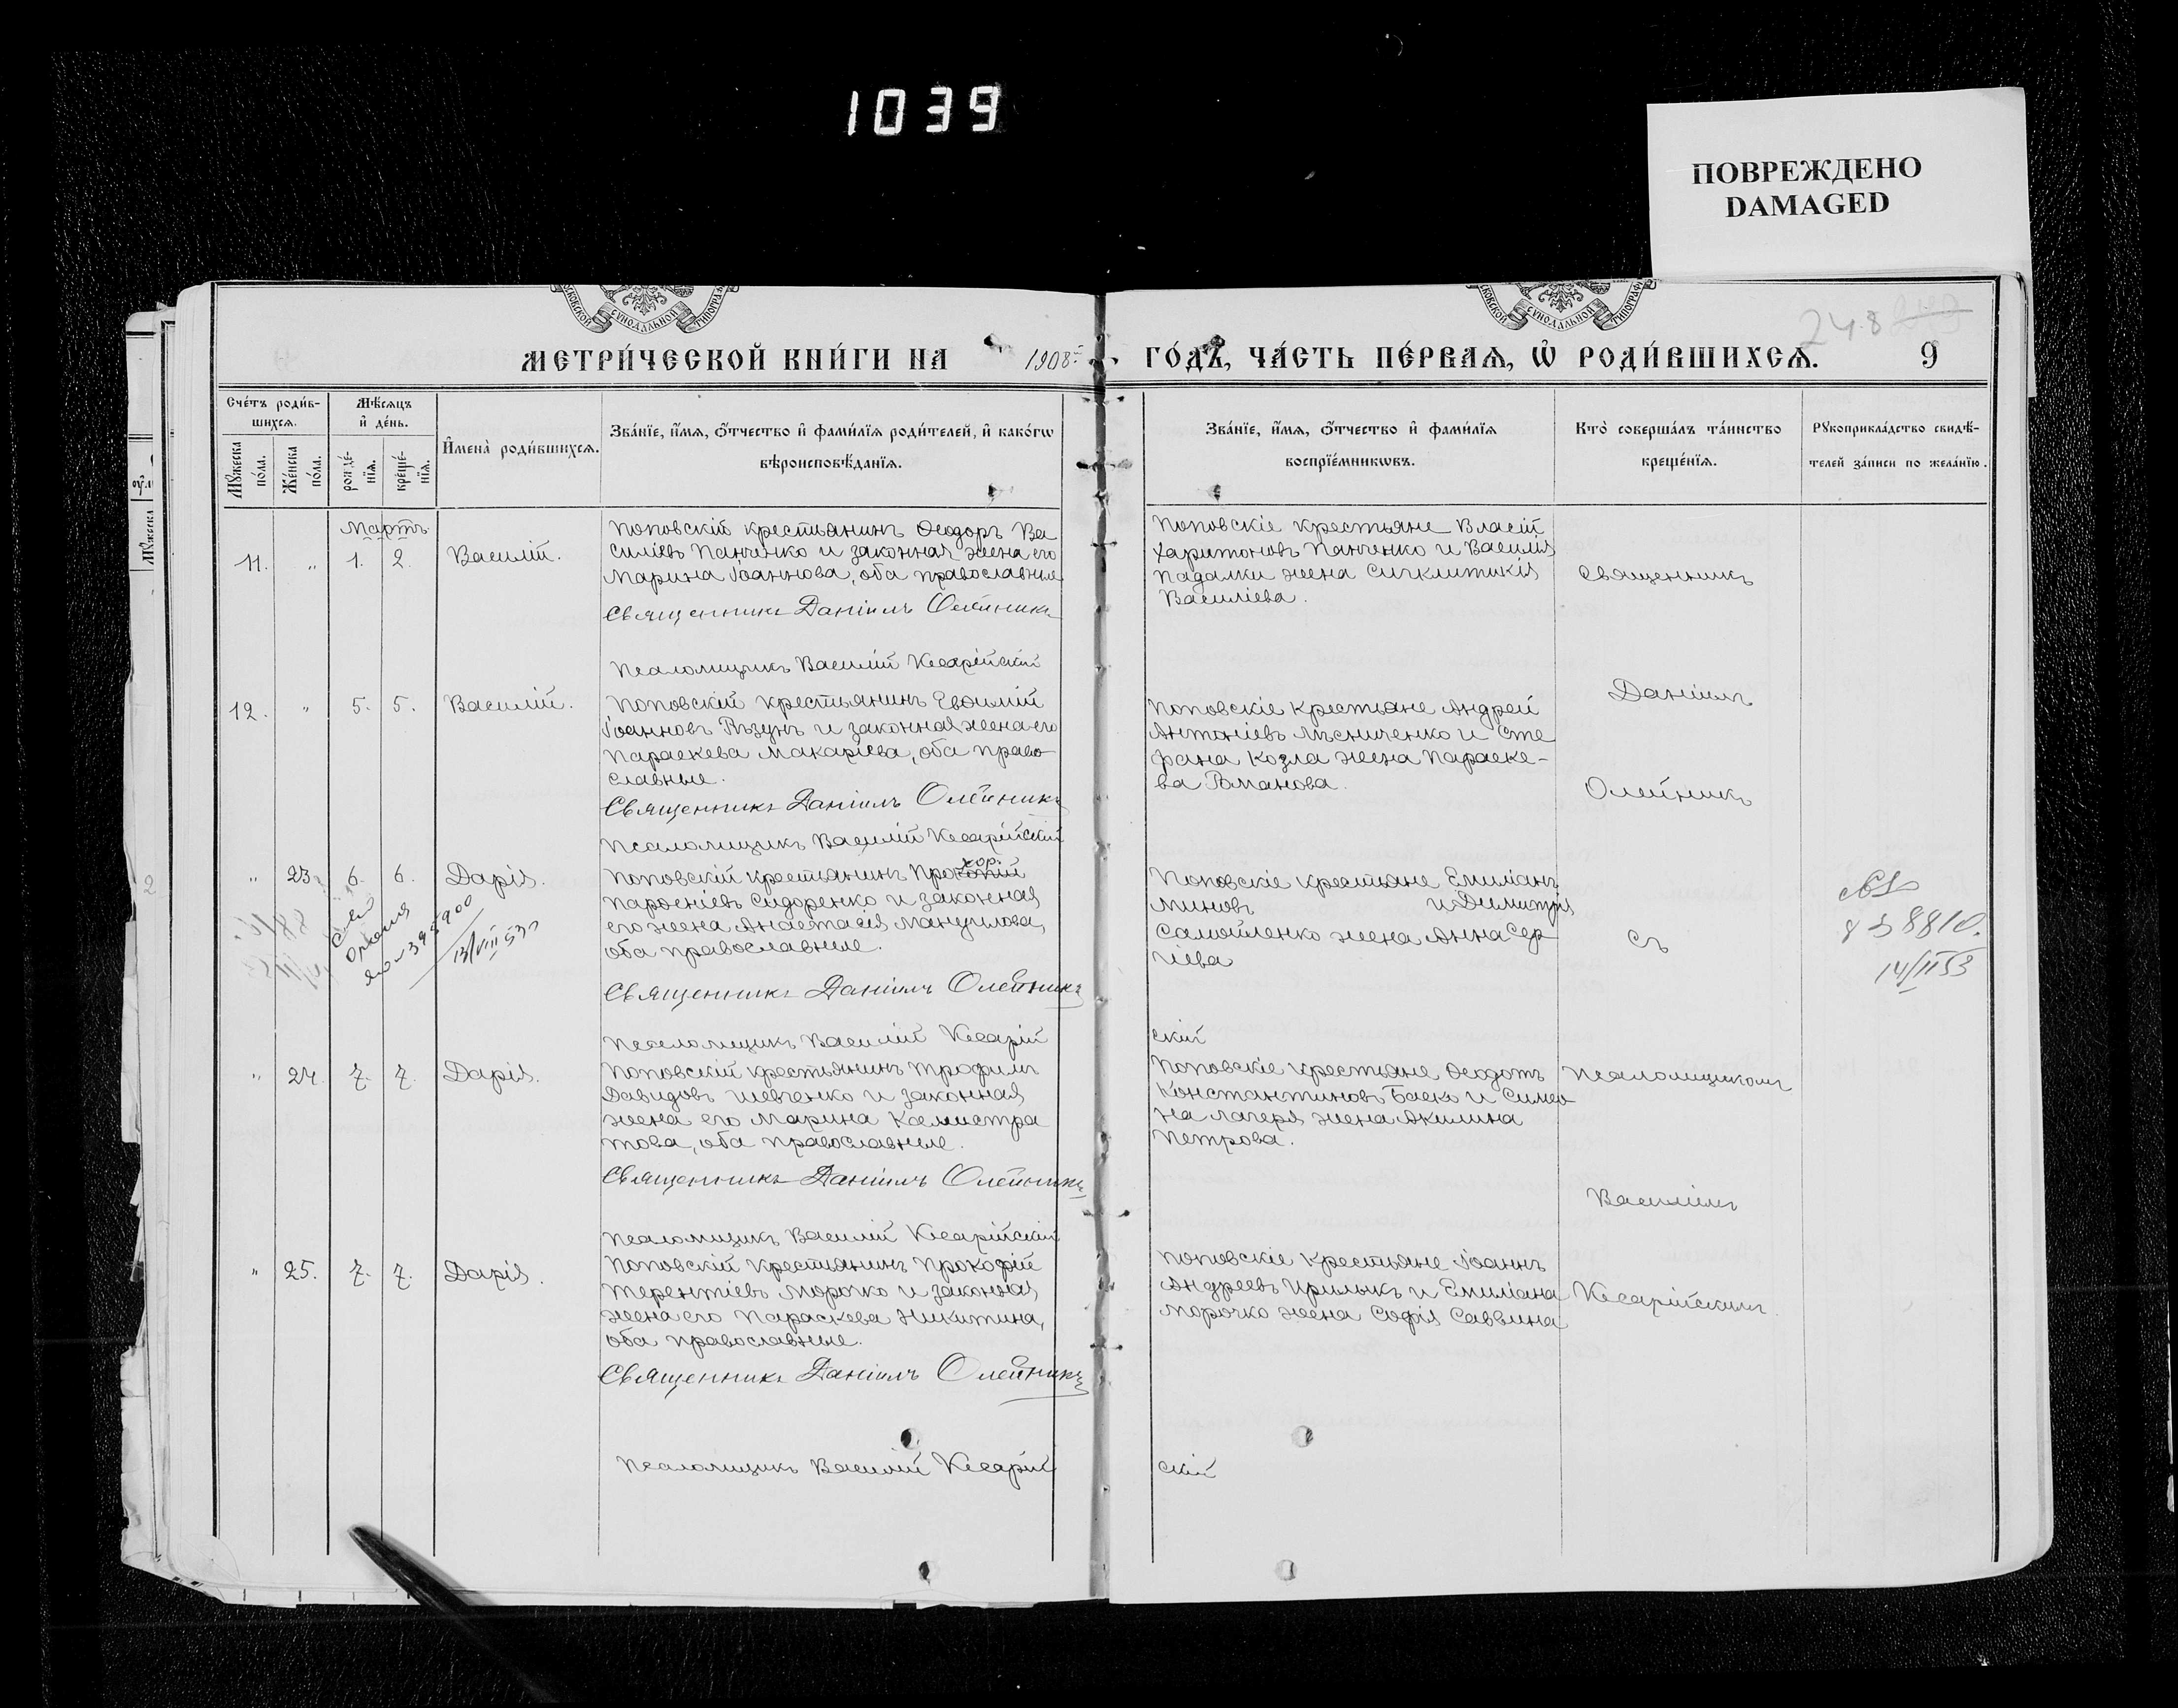 1039
ПОВРЕЖДЕНО
DAMAGED
248
МЕТРИ́ЧЕСКОЙ КНИ́ГИ НА 1908 ГО́ДЪ, ЧА́СТЬ ПЕ́РВАѦ, Ѽ РОДИ́ВШИХСѦ. 9
Сче́тъ роди́в-
шихсѧ.
Мѣ́сѧцъ
и҆ де́нь.
Мꙋ́жеска
по́ла.
Же́нска
по́ла.
рожде́-
нїѧ.
креще́-
нїѧ.
И҆мена̀ роди́вшихсѧ.
Зва́нїе, и҆́мѧ, ѻ҆́тчество и҆ фами́лїѧ роди́телей, и҆ како́гѡ
вѣроисповѣ́данїѧ.
Зва́нїе, и҆́мѧ, ѻ҆́тчество и҆ фами́лїѧ
воспрїе́мникѡвъ.
Кто̀ соверша́лъ та́инство
креще́нїѧ.
Рꙋкоприкла́дство свидѣ́-
телей за́писи по жела́нїю.
Мартъ
11. „ 1. 2. Василій.
Поповскій крестьянинъ Ѳеодоръ Ва
силіевъ Панченко и законная жена его
Марина Іоаннова, оба православные
Священникъ Даніилъ Олейникъ
Псаломщикъ Василій Кесарійскій
Поповскіе крестьяне Власій
Харитоновъ Панченко и Василія
Падалки жена Сигклитикія
Василіева.
Священникъ
12. „ 5. 5. Василій.
Поповскій крестьянинъ Евѳимій
Іоанновъ Вѣзунъ и законная жена его
Параскева Макаріева, оба право-
славные.
Священникъ Даніилъ Олейникъ
Псаломщикъ Василій Кесарійскій
Поповскіе крестьяне Андрей
Антоніевъ Лѣсниченко и Сте
фана Козла жена Параске-
ва Романова.
Даніилъ
Олейникъ
„ 23. 6. 6. Дарія.
Поповскій крестьянинъ Прокопій
хор.
Парѳеніевъ Сидоренко и законная
его жена Анастасія Мануилова,
оба православные.
Священникъ Даніилъ Олейникъ
Псаломщикъ Василій Кесарій
скій
Поповскіе крестьяне Емиліанъ
Миновъ и Димитрія
Самойленко жена Анна Сер
гіева
съ
8810.
14/II 53
13/VIII 53
„ 24. 7. 7. Дарія.
Поповскій крестьянинъ Трофимъ
Давидовъ Шевченко и законная
жена его Марина Каллистра
това, оба православные.
Священникъ Даніилъ Олейникъ
Псаломщикъ Василій Кесарійскій
Поповскіе крестьяне Ѳеодотъ
Константиновъ Баско и Симео
на Лагеря жена Акилина
Петрова.
Псаломщикомъ
Василіемъ
„ 25. 7. 7. Дарія.
Поповскій крестьянинъ Прокофій
Терентіевъ Морочко и законная
жена его Параскева Никитина,
оба православные.
Священникъ Даніилъ Олейникъ
Псаломщикъ Василій Кесарій
скій
Поповскіе крестьяне Іоаннъ
Андреевъ Ирилыкъ и Емиліана
Морочко жена Софія Саввина
Кесарійскимъ.